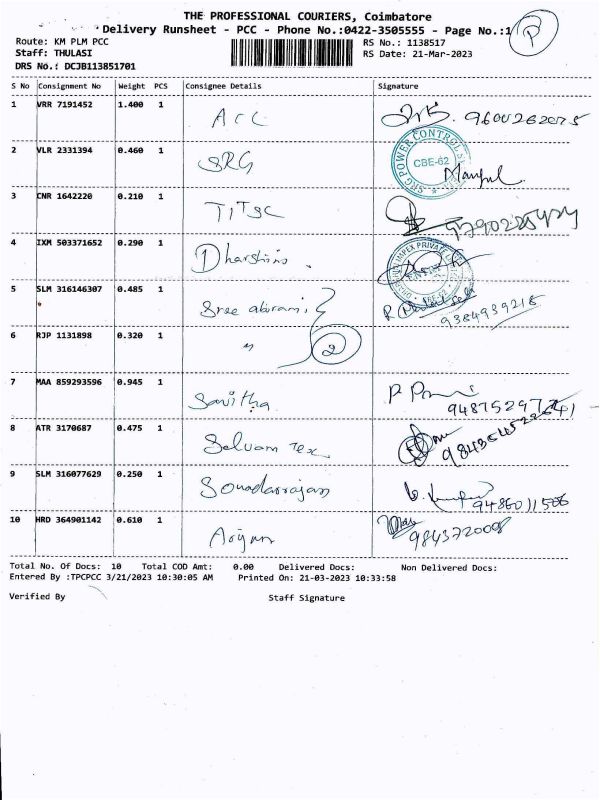 THE PROFESSIONAL COURIERS, Coimbatore
Delivery Runsheet - PCC - Phone No.:0422-3505555 - Page No.:1 P
Route: KM PLM PCC RS No.: 1138517
Staff: THULASI RS Date: 21-Mar-2023
DRS No.: DCJB113851701
S No Consignment No Weight PCS Consignee Details Signature
1 VRR 7191452 1.400 1 ACC 9600262075
2 VLR 2331394 0.460 1 SRG
SRG POWER CONTROL
CBE-62
3 CNR 1642220 0.210 1 TITSC
4 IXM 503371652 0.290 1 Dharshini
IMPEX PRIVATE
5 SLM 316146307 0.485 1 Sree abirami
CBE-62
9384939215
6 RJP 1131898 0.320 1 " 2
7 MAA 859293596 0.945 1 Savitha
8 ATR 3170687 0.475 1 Selvam Tex
9 SLM 316077629 0.250 1 Soundarrajan 9486011506
10 HRD 364901142 0.610 1 Aryan 9843720008
Total No. Of Docs: 10 Total COD Amt: 0.00 Delivered Docs: Non Delivered Docs:
Entered By :TPCPCC 3/21/2023 10:30:05 AM Printed On: 21-03-2023 10:33:58
Verified By Staff Signature